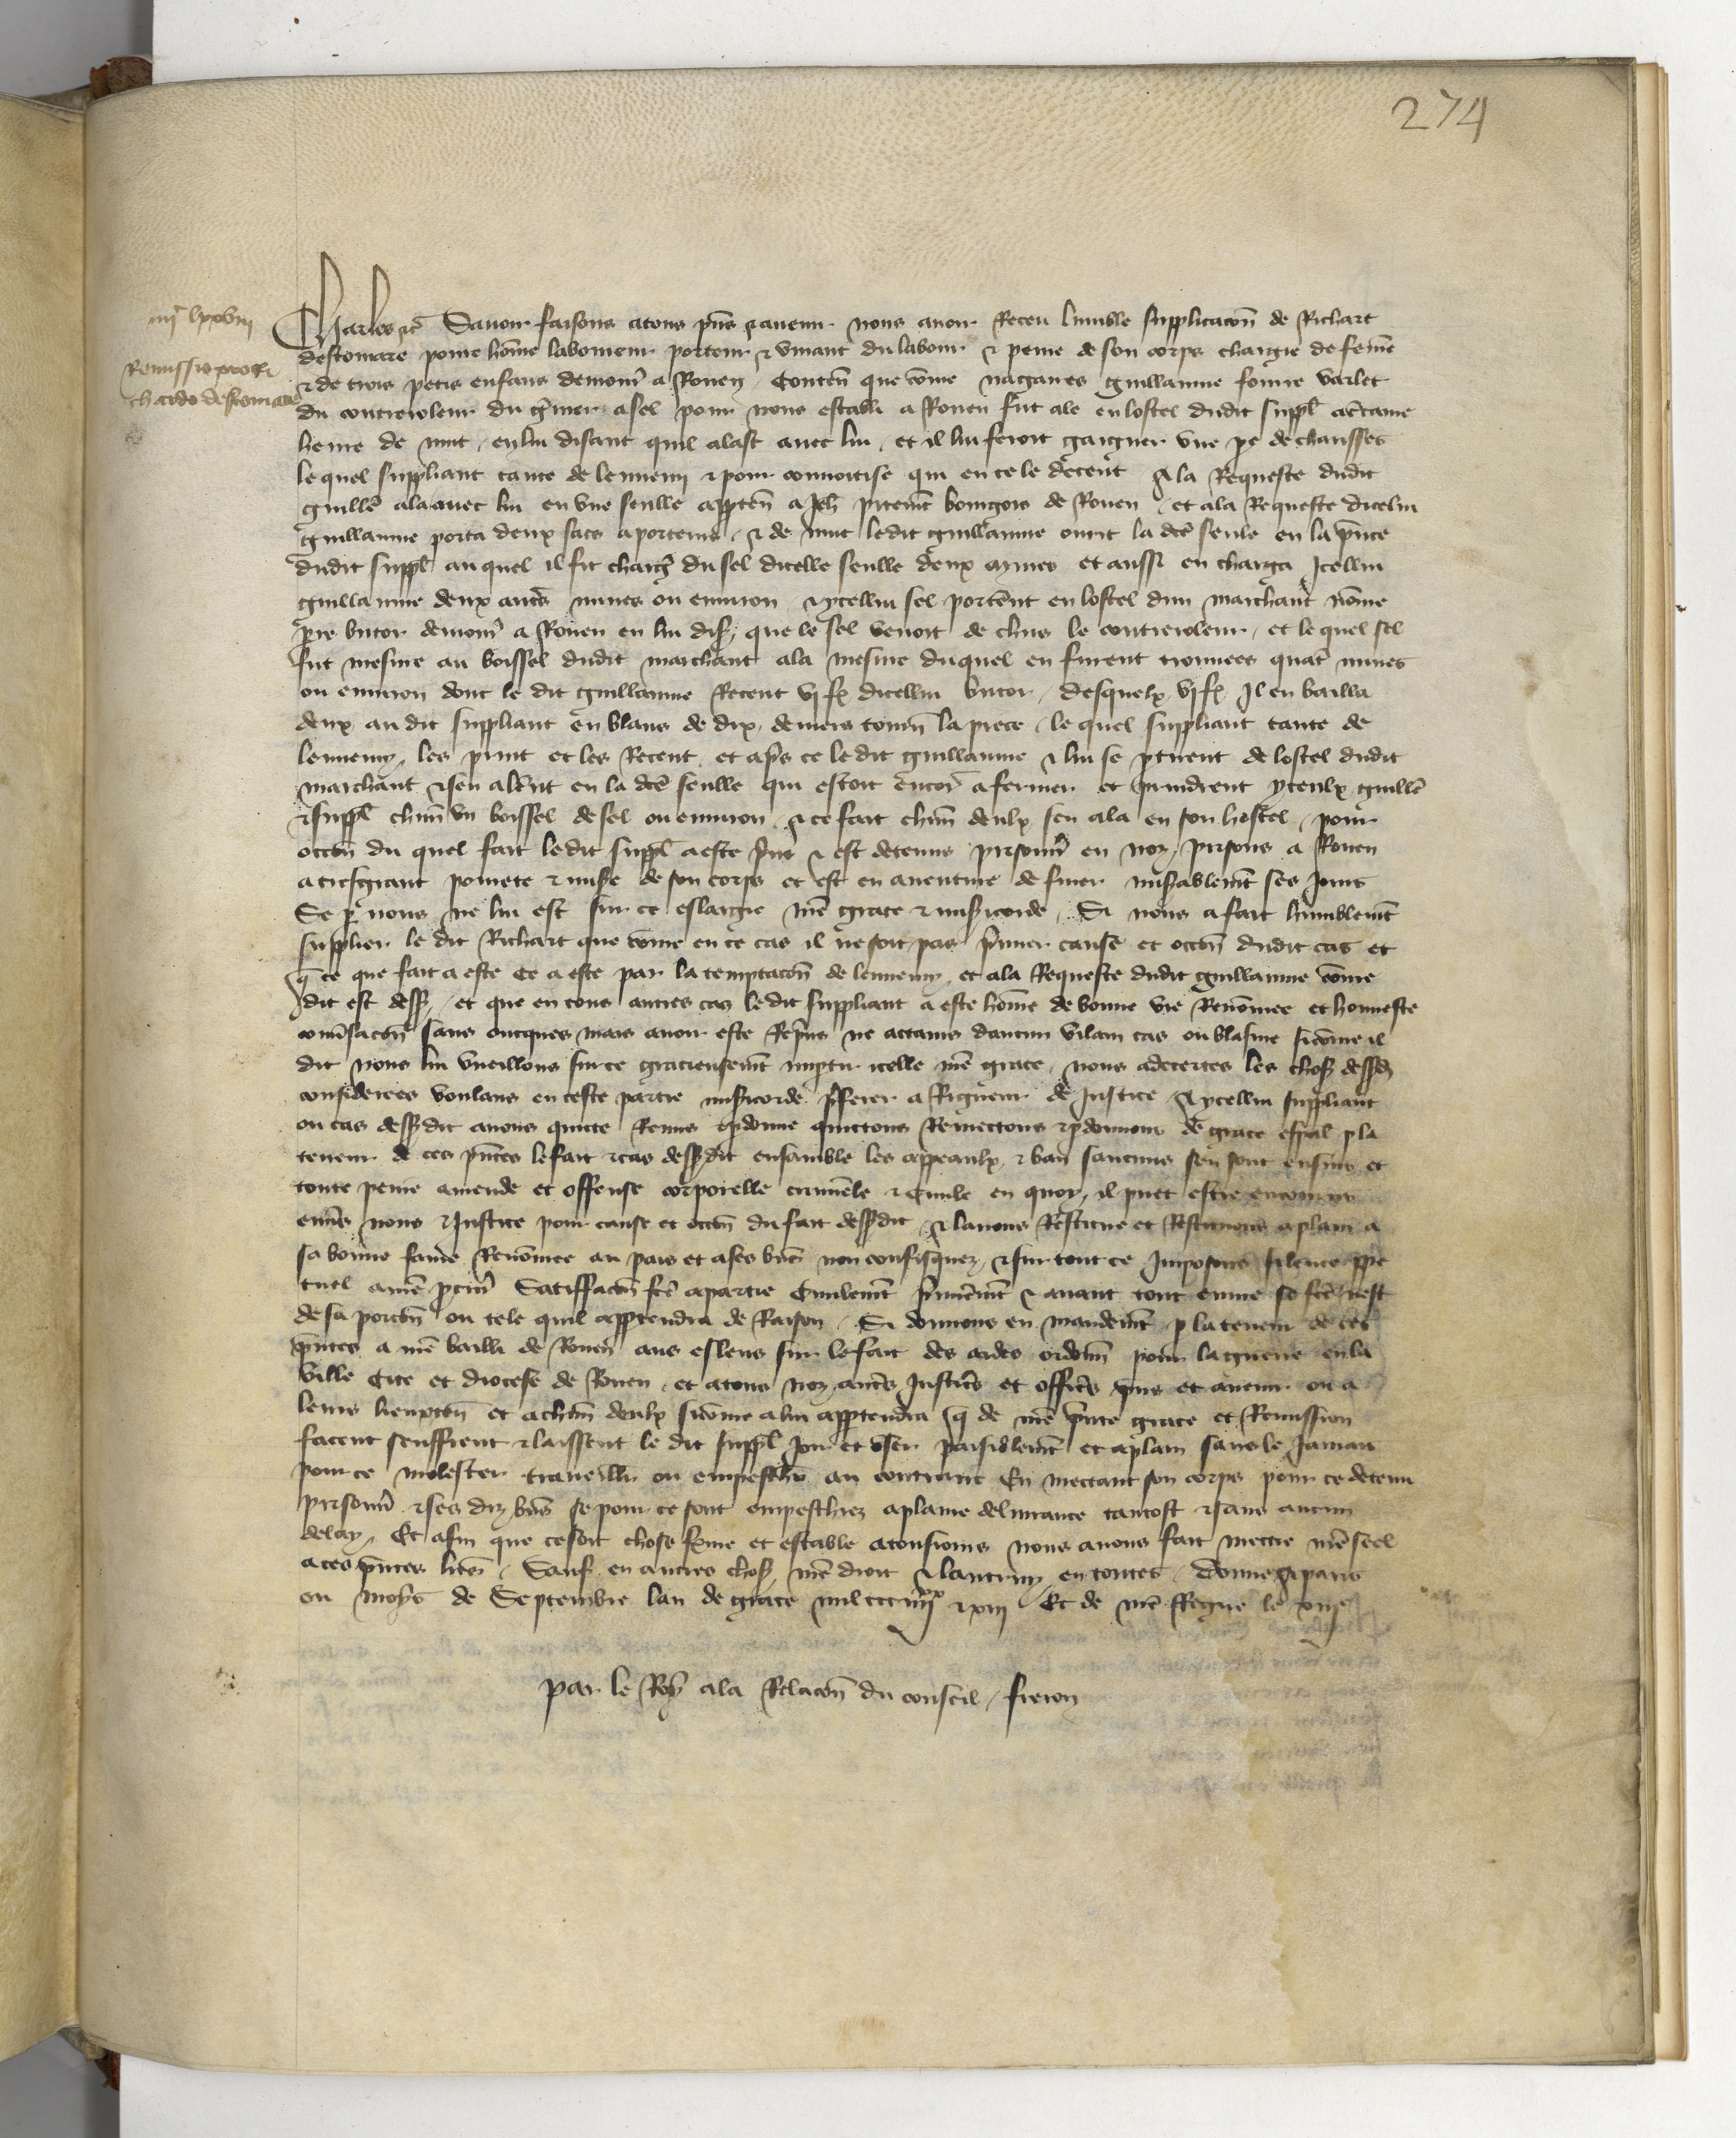 274
iiiᶜ lxxviii
Remissio pro Ri
chardo destomare
Charles etc̃ Savoir faisons a tous p̃ns et avenir nous avoir Receu lumble supplicacōn de Richart
destomare povre hōme laboureur porteur et vivant du labour et peine de son corps chargie de femē
et de trois petis enfans demour̃ a Rouen Conten̄ que cōme nagaires guillaume varlet
du contreroleur du g̃nier a sel pour nous establi a Rouen fut ale en lostel dudit suppl̃ a certaine
heure de nuit en lui disant quil alast avec lui et il lui feroit gaigner une pe de chausses
lequel suppliant tante de lennemi et pour convoitise qui en ce le deceut et a la Requeste dudit
guill̃e ala avec lui en une seulle apptēn a Jeh̃ bourgois de Rouen et a la Requeste dicelui
guillaume porta deux sacs a porteurs et de nuit ledit guillaume ouvrit la dc̃e seule en la p̃nce
dudit suppl̃ au quel il fit charg̃ du sel dicelle seulle deux mines et aussi en charga Icellui
guillaume deux autr̃s mines ou environ et ycellui sel port̃ent en lostel dun marchant nōme
p̃re butor demour̃ a Rouen en lui dis̃ que le sel venoit de chies le contreroleur et le quel sel
fut mesure au boissel dudit marchant a la mesure duquel en furent trouvees quat̃ mines
ou environ dont le dit guillaume Receut vi fr̃ dicellui butor desquelx vi fr̃ Il en bailla
deux au dit suppliant en blans de dix deniers tourñ la piece le quel suppliant tante de
lennemy les print et les Receut et ap̃s ce le dit guillaume et lui se p̃tirent de lostel dudit
marchant et sen al̃ent en la dc̃e seulle qui estoit encor̃ a fermer et prindrent yceulx guill̃e
et suppl̃ ch̃un un boissel de sel ou environ et ce fait ch̃un deulx sen ala en son hostel pour
occōn du quel fait ledit suppl̃ a este p̃ns et est detenus prisonñ en noz prisons a Rouen
a tresgrant povrete et mis̃e de son corps et est en aventure de finer mis̃ablemt̃ ses jours
Se p̃ nous ne lui est sur ce eslargie nr̃e grace et mis̃icorde Si nous a fait humblemt̃
supplier le dit Richart que cōme en ce cas il ne soit pas p̃mier cause et occōn dudit cas et
q̃ ce que fait a este ce a este par la temptacōn de lennemy et a la Requeste dudit guillaume cōme
dit est dess̃ et que en tous autres cas ledit suppliant a este hōme de bonne vie Renōmee et honneste
conṽsacōn sans oncques mais avoir este Rep̃ns ne actains daucun vilain cas ou blasme sicōme il
dit nous lui vueillons sur ce gracieusemt̃ imptir icelle nr̃e grace nous adecertes les chos̃ dess̃d
considerees voulans en ceste partie mis̃icorde p̃ferer a Rigueur de Justice A ycellui suppliant
ou cas dess̃dit avons quicte Remis et p̃donne quictons Remectons et p̃donnons de grace esp̃al p la
teneur de ces p̃ntes le fait et cas dess̃dit ensamble les appeaulx et ban saucuns sen sont ensuis et
toute peine amende et offense corporelle crimin̄le et Civile en quoy il puet estre encouru
env̄s nous et Justice pour cause et occōn du fait dess̃dit et lavons Restitue et Restituons a plain a
sa bonne fame Renōmee au pais et a ses bn̄s non confisquez et sur tout ce Imposons silence ppe
tuel a nr̃e pcur̃ Satiffacōn fc̃e a partie Civilemt̃ p̃mierement et avant tout euvre se fc̃e nest
de sa porcōn ou tele quil apptendra de Raison Si donnons en mandemt̃ p la teneur de ces
p̃ntes a nr̃e bailli de Rouen aus esleus sur le fait des aides ordoñ pour la guerre en la
ville Cite et diocese de Rouen et a tous noz autr̃s Justic̃s et offic̃s p̃ns et avenir ou a
leurs lieuxteñ et a ch̃un deulx sicōme a lui apptendra q̃ de nr̃e p̃nte grace et Remission
facent seuffrent et laissent le dit suppl̃ Joir et user paisiblemt̃ et a plain sans le Jamais
pour ce molester traveill̃ ou empesch̃ au contraire En mectant son corps pour ce detenu
prisonñ et ses diz bn̄s se pour ce sont empeschiez a plaine delivrance tantost et sans aucun
delay Et afin que ce soit chose ferme et estable a tousiours nous avons fait mectre nr̃e seel
a ces p̃ntes lr̃es Sauf en autres chos̃ nr̃e droit et lautruy en toutes Donne a paris
ou moys de Septembre lan de grace mil ccc iiiiˣˣ et xiii Et de nr̃e Regne le xiiie
par le Roy a la Relacōn du conseil freron